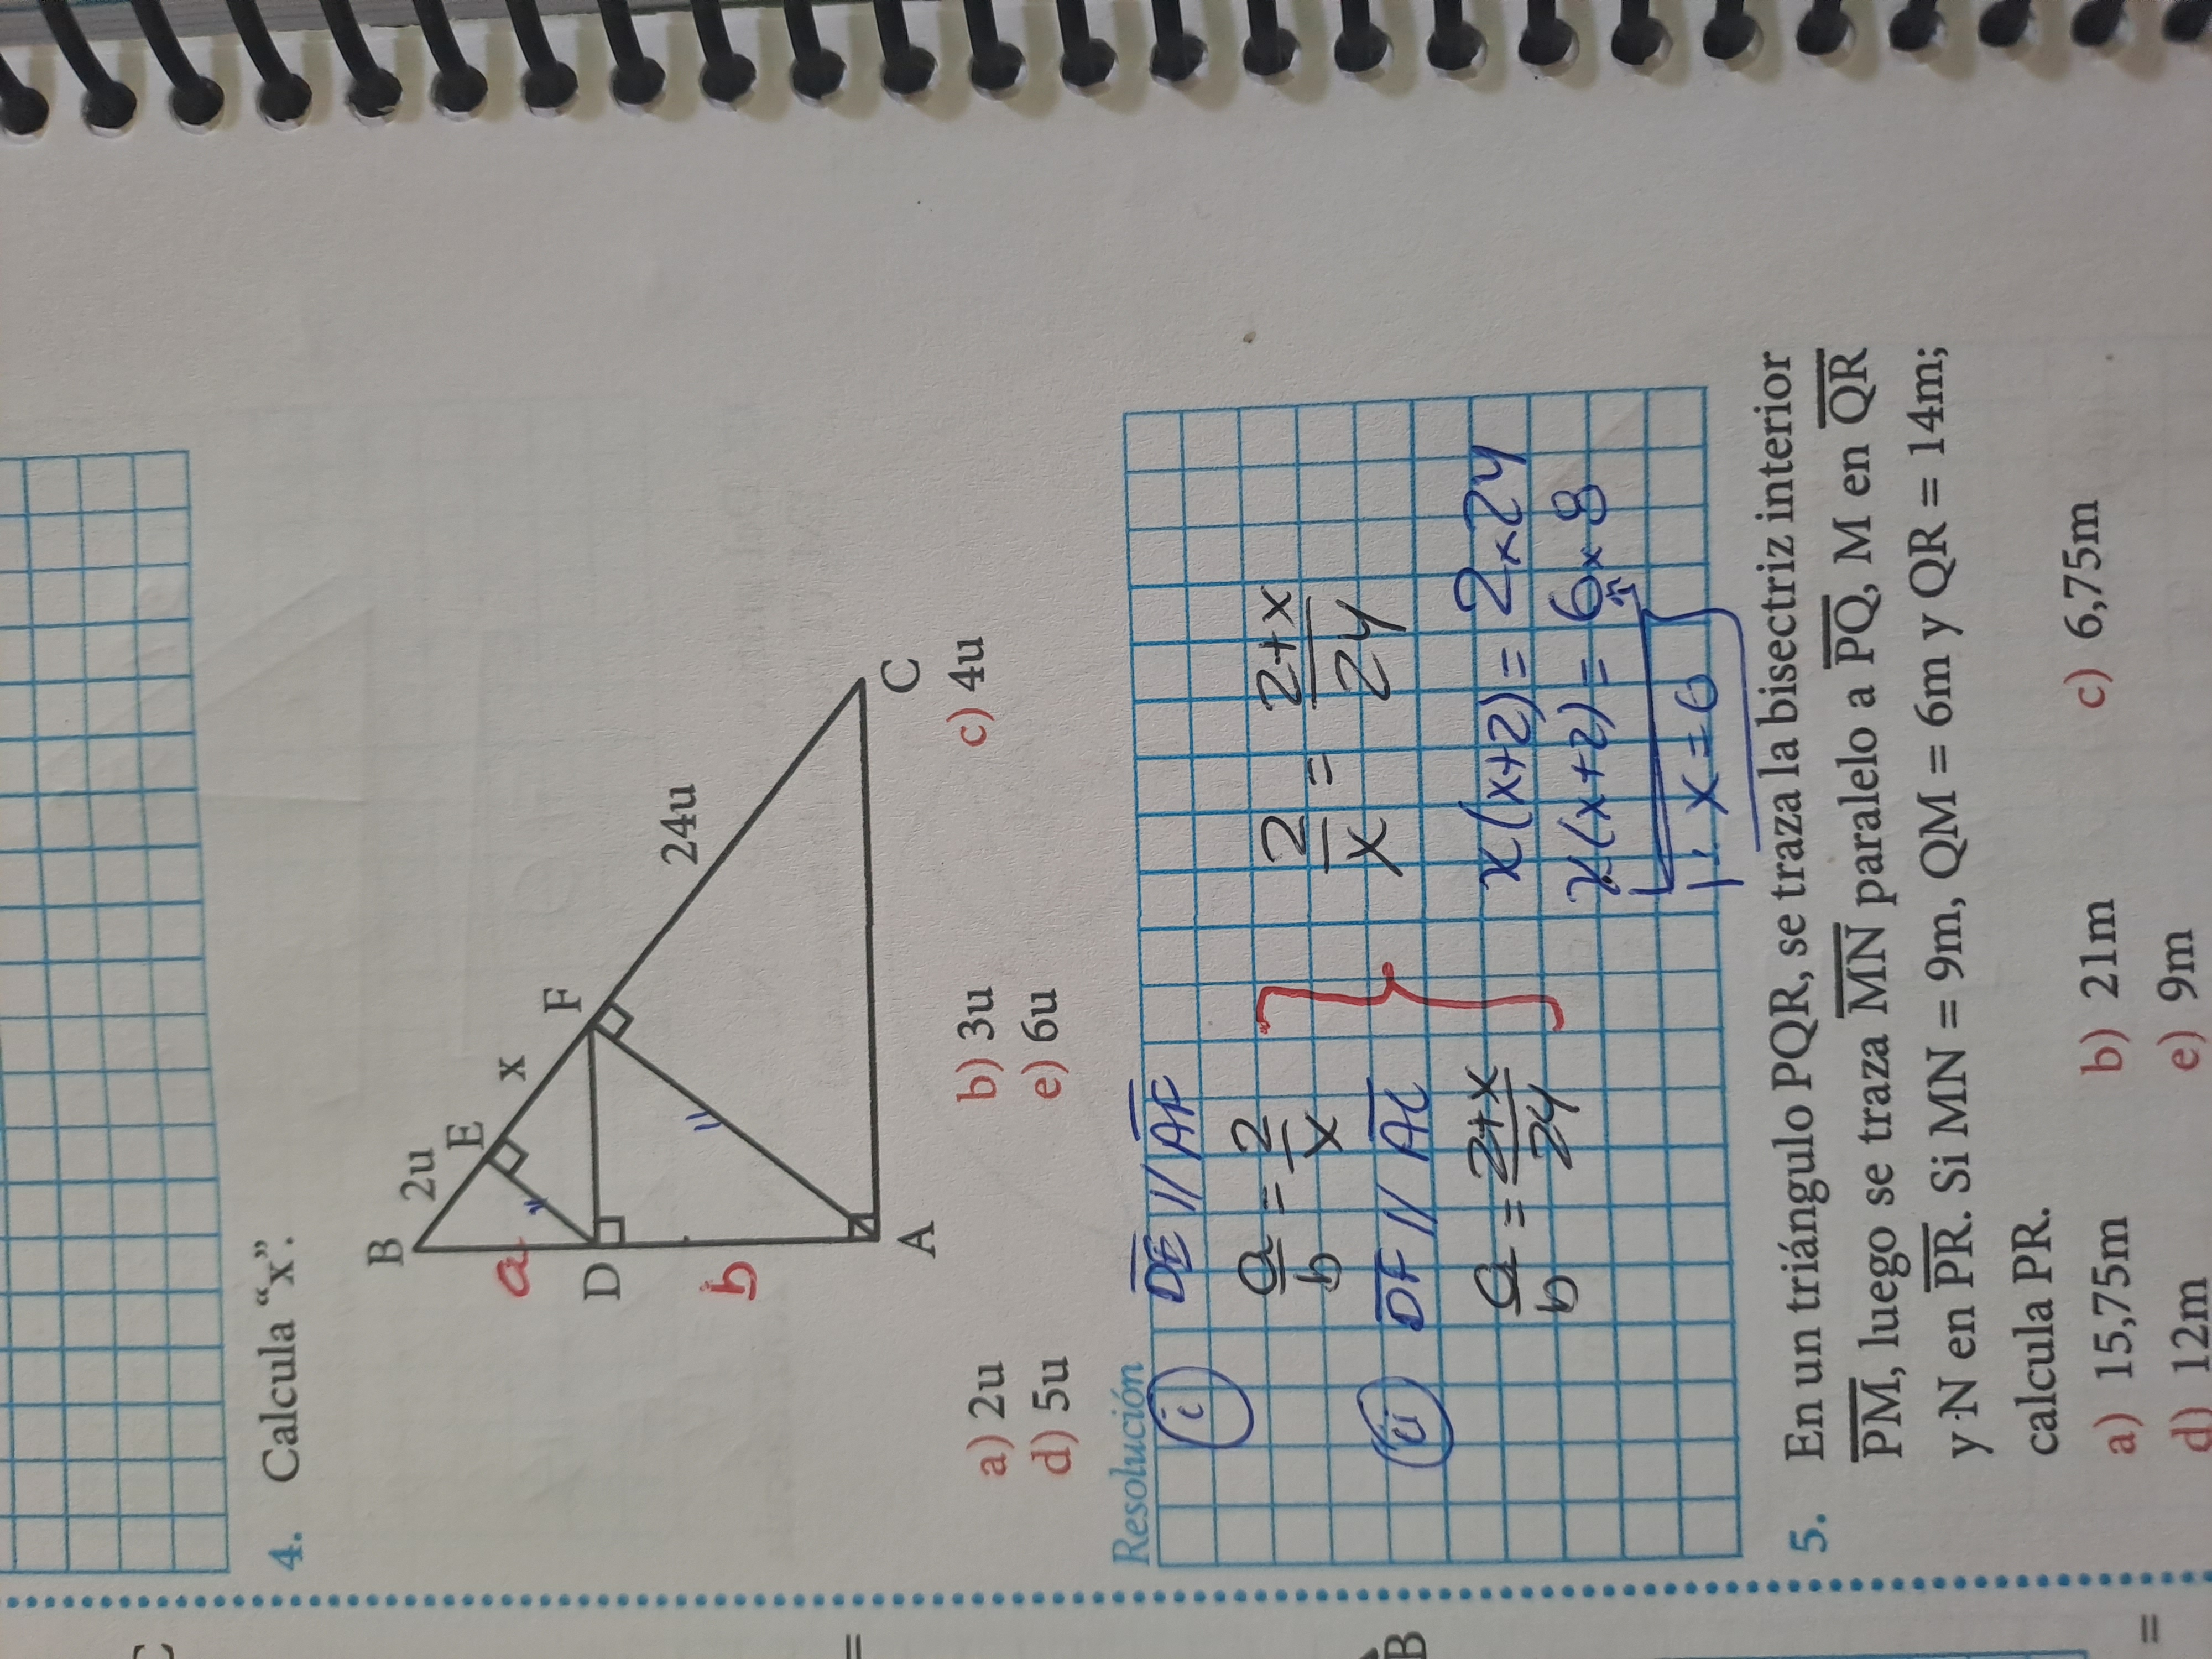 4. Calcula “x”.
B
2u
E
a
x
F
D
24u
b
A
C
a) 2u b) 3u c) 4u
d) 5u e) 6u
Resolución
i DE // AF
a/b = 2/x
2/x = 2+x/24
ii DF // AC
a/b = 2+x/24
x(x+2) = 2x24
x(x+2) = 6x8
∴ x = 6
5. En un triángulo PQR, se traza la bisectriz interior
PM, luego se traza MN paralelo a PQ, M en QR
y N en PR. Si MN = 9m, QM = 6m y QR = 14m;
calcula PR.
a) 15,75m b) 21m c) 6,75m
d) 12m e) 9m
B
=
=